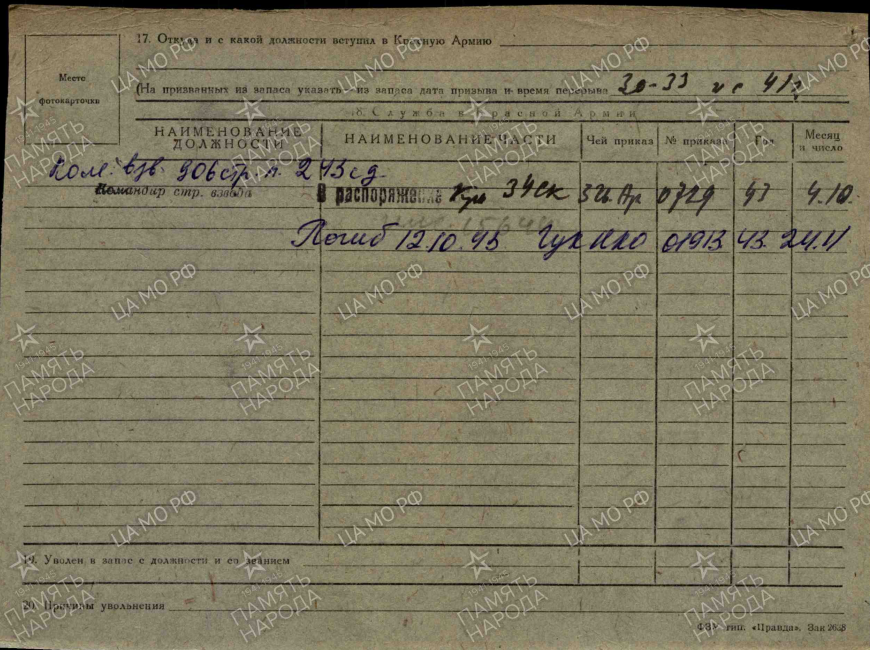 17. Откуда и с какой должности вступил в Красную Армию
Место
фотокарточки
(На призванных из запаса указать — из запаса дата призыва и время перерыва 30-33 и с 41 г
18. Служба в Красной Армии
НАИМЕНОВАНИЕ ДОЛЖНОСТИ НАИМЕНОВАНИЕ ЧАСТИ Чей приказ № приказа Год Месяц и число
Ком. взв. 906 стр. п. 243 сд
Командир стр. взвода В распоряжение 34 ск 3 Ук. Фр 0729 43 4.10
Погиб 12.10.43 ГУК НКО 01913 43. 24.11
19. Уволен в запас с должности и со званием
20. Причины увольнения
тип. «Правда». Зак 2638
ЦА МО РФ
1941-1945
ПАМЯТЬ
НАРОДА